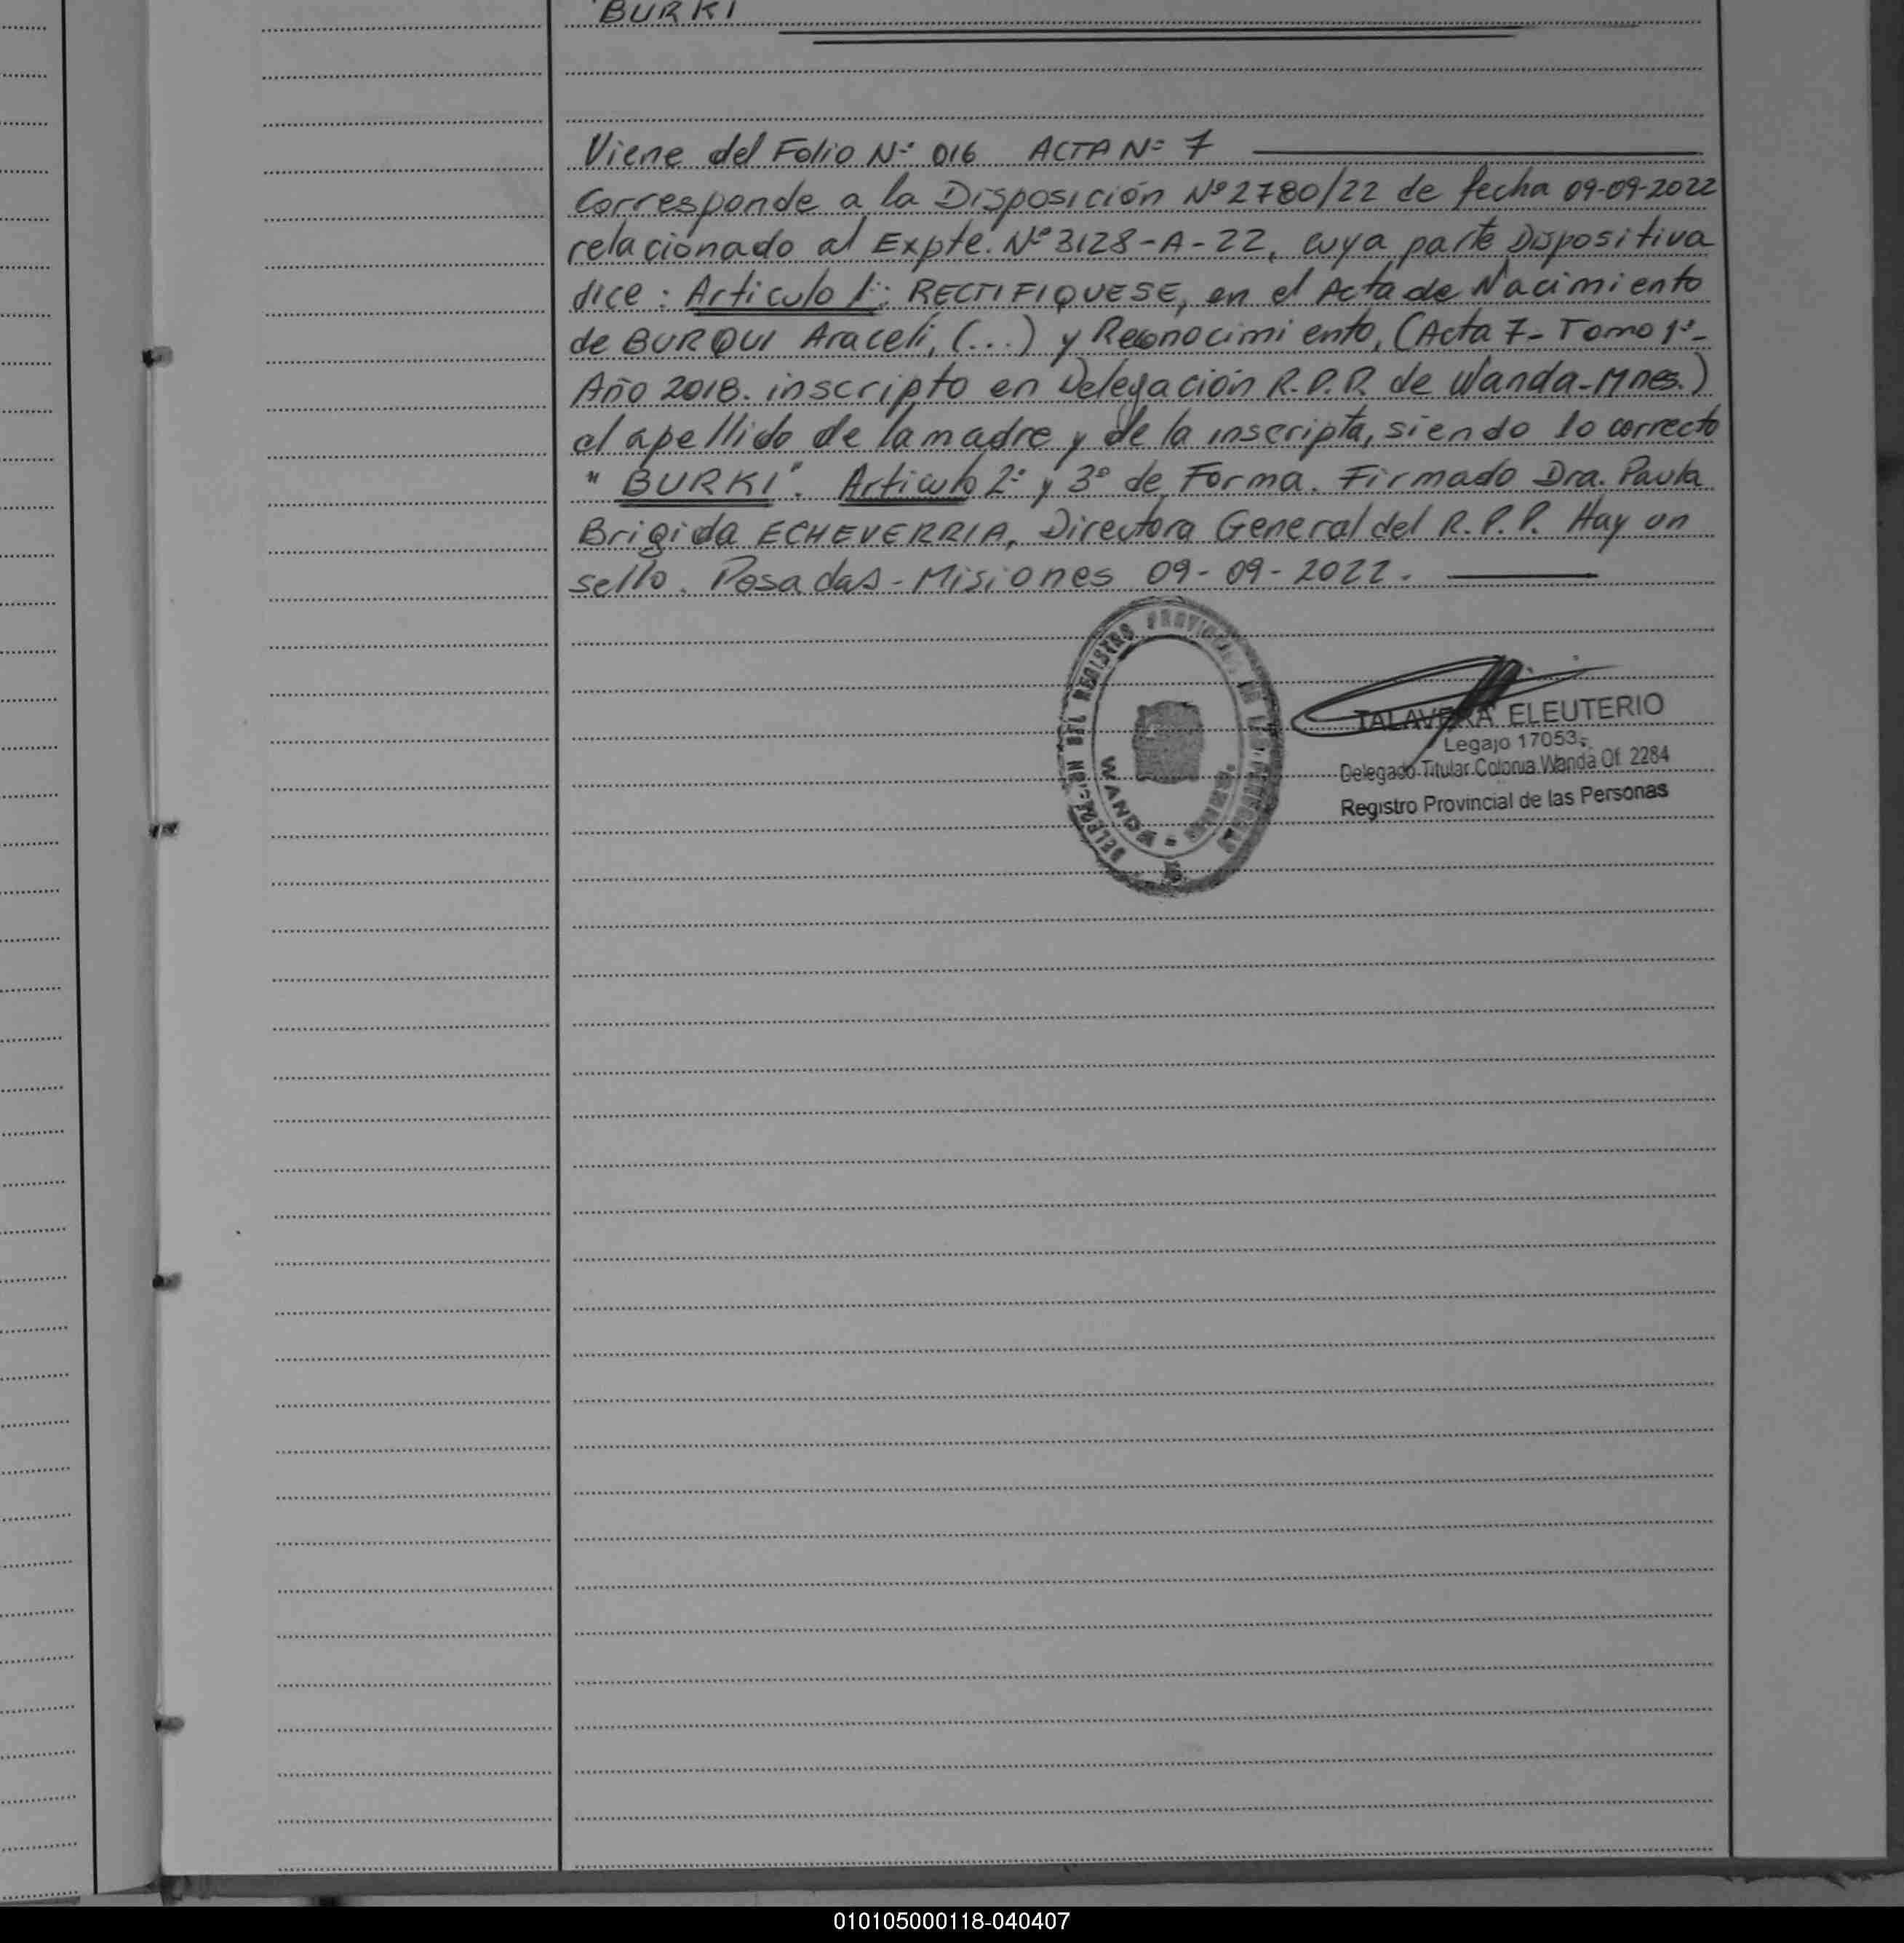 BURKI
Viene del Folio Nº 016 ACTA Nº 7
Corresponde a la Disposición Nº 2780/22 de fecha 09-09-2022
relacionado al Expte. Nº 3128-A-22, cuya parte Dispositiva
dice: Articulo 1º: RECTIFIQUESE, en el Acta de Nacimiento
de BURQUI Araceli, (...) y Reconocimiento, (Acta 7- Tomo 1º-
Año 2018. inscripto en Delegación R.P.P. de Wanda-Mnes.)
el apellido de la madre y de la inscripta, siendo lo correcto
"BURKI". Articulo 2º y 3º de Forma. Firmado Dra. Paula
Brigida ECHEVERRIA, Directora General del R.P.P. Hay un
sello. Posadas-Misiones 09-09-2022.
DELEGACION DEL REGISTRO PROVINCIAL DE LAS PERSONAS
WANDA
TALAVERA ELEUTERIO
Legajo 17053
Delegado Titular Colonia Wanda Of. 2284
Registro Provincial de las Personas
010105000118-040407